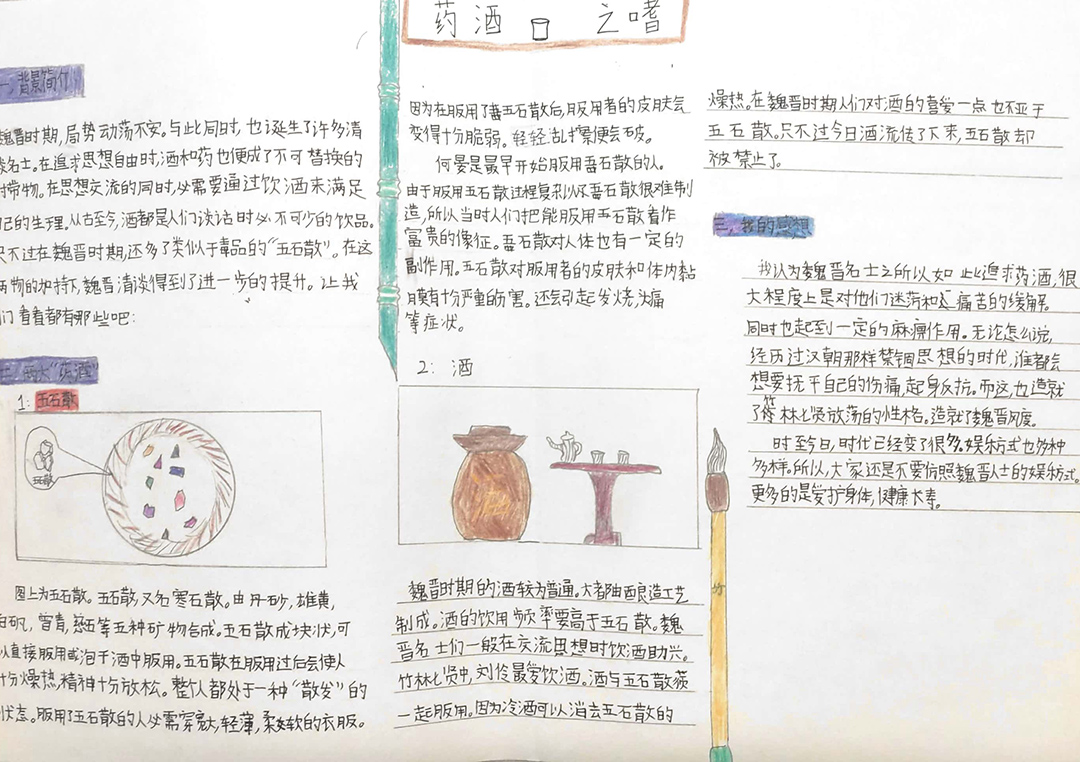 药酒之嗜
一、背景简介
魏晋时期，局势动荡不安。与此同时，也诞生了许多清
谈名士。在追求思想自由时，酒和药也便成了不可替换的
附带物。在思想交流的同时，必需要通过饮酒来满足
自己的生理。从古至今，酒都是人们谈话时必不可少的饮品。
只不过在魏晋时期，还多了类似于毒品的“五石散”。在这
两物的加持下，魏晋清谈得到了进一步的提升。让我
们看看都有那些吧：
二、两大“药酒”
1：五石散
五石散
图上为五石散。五石散，又名寒石散。由丹砂，雄黄，
白矾，曾青，慈玉等五种矿物合成。五石散成块状，可
以直接服用或泡于酒中服用。五石散在服用过后会使人
十分燥热，精神十分放松。整个人都处于一种“散发”的
状态。服用了五石散的人必需穿宽大，轻薄，柔软的衣服。
因为在服用了五石散后，服用者的皮肤会
变得十分脆弱。轻轻一挠便会破。
何晏是最早开始服用五石散的人。
由于服用五石散过程复杂以及五石散很难制
造，所以当时人们把能服用五石散看作
富贵的像征。五石散对人体也有一定的
副作用。五石散对服用者的皮肤和体内黏
膜有十分严重的伤害。还会引起发烧，头痛
等症状。
2：酒
酒
魏晋时期的酒较为普通。大都由酿造工艺
制成。酒的饮用频率要高于五石散。魏
晋名士们一般在交流思想时饮酒助兴。
竹林七贤中，刘伶最爱饮酒。酒与五石散须
一起服用。因为冷酒可以消去五石散的
燥热。在魏晋时期人们对酒的喜爱一点也不亚于
五石散。只不过今日酒流传了下来，五石散却
被禁止了。
三、我的感想
我认为魏晋名士之所以如此追求药酒，很
大程度上是对他们迷茫和痛苦的缓解。
同时也起到一定的麻痹作用。无论怎么说，
经历过汉朝那样禁锢思想的时代，谁都会
想要抚平自己的伤痛，起身反抗。而这，也造就
了竹林七贤放荡的性格。造就了魏晋风度。
时至今日，时代已经变了很多。娱乐方式也多种
多样。所以，大家还是不要仿照魏晋人士的娱乐方式。
更多的是爱护身体，健康长寿。
竹